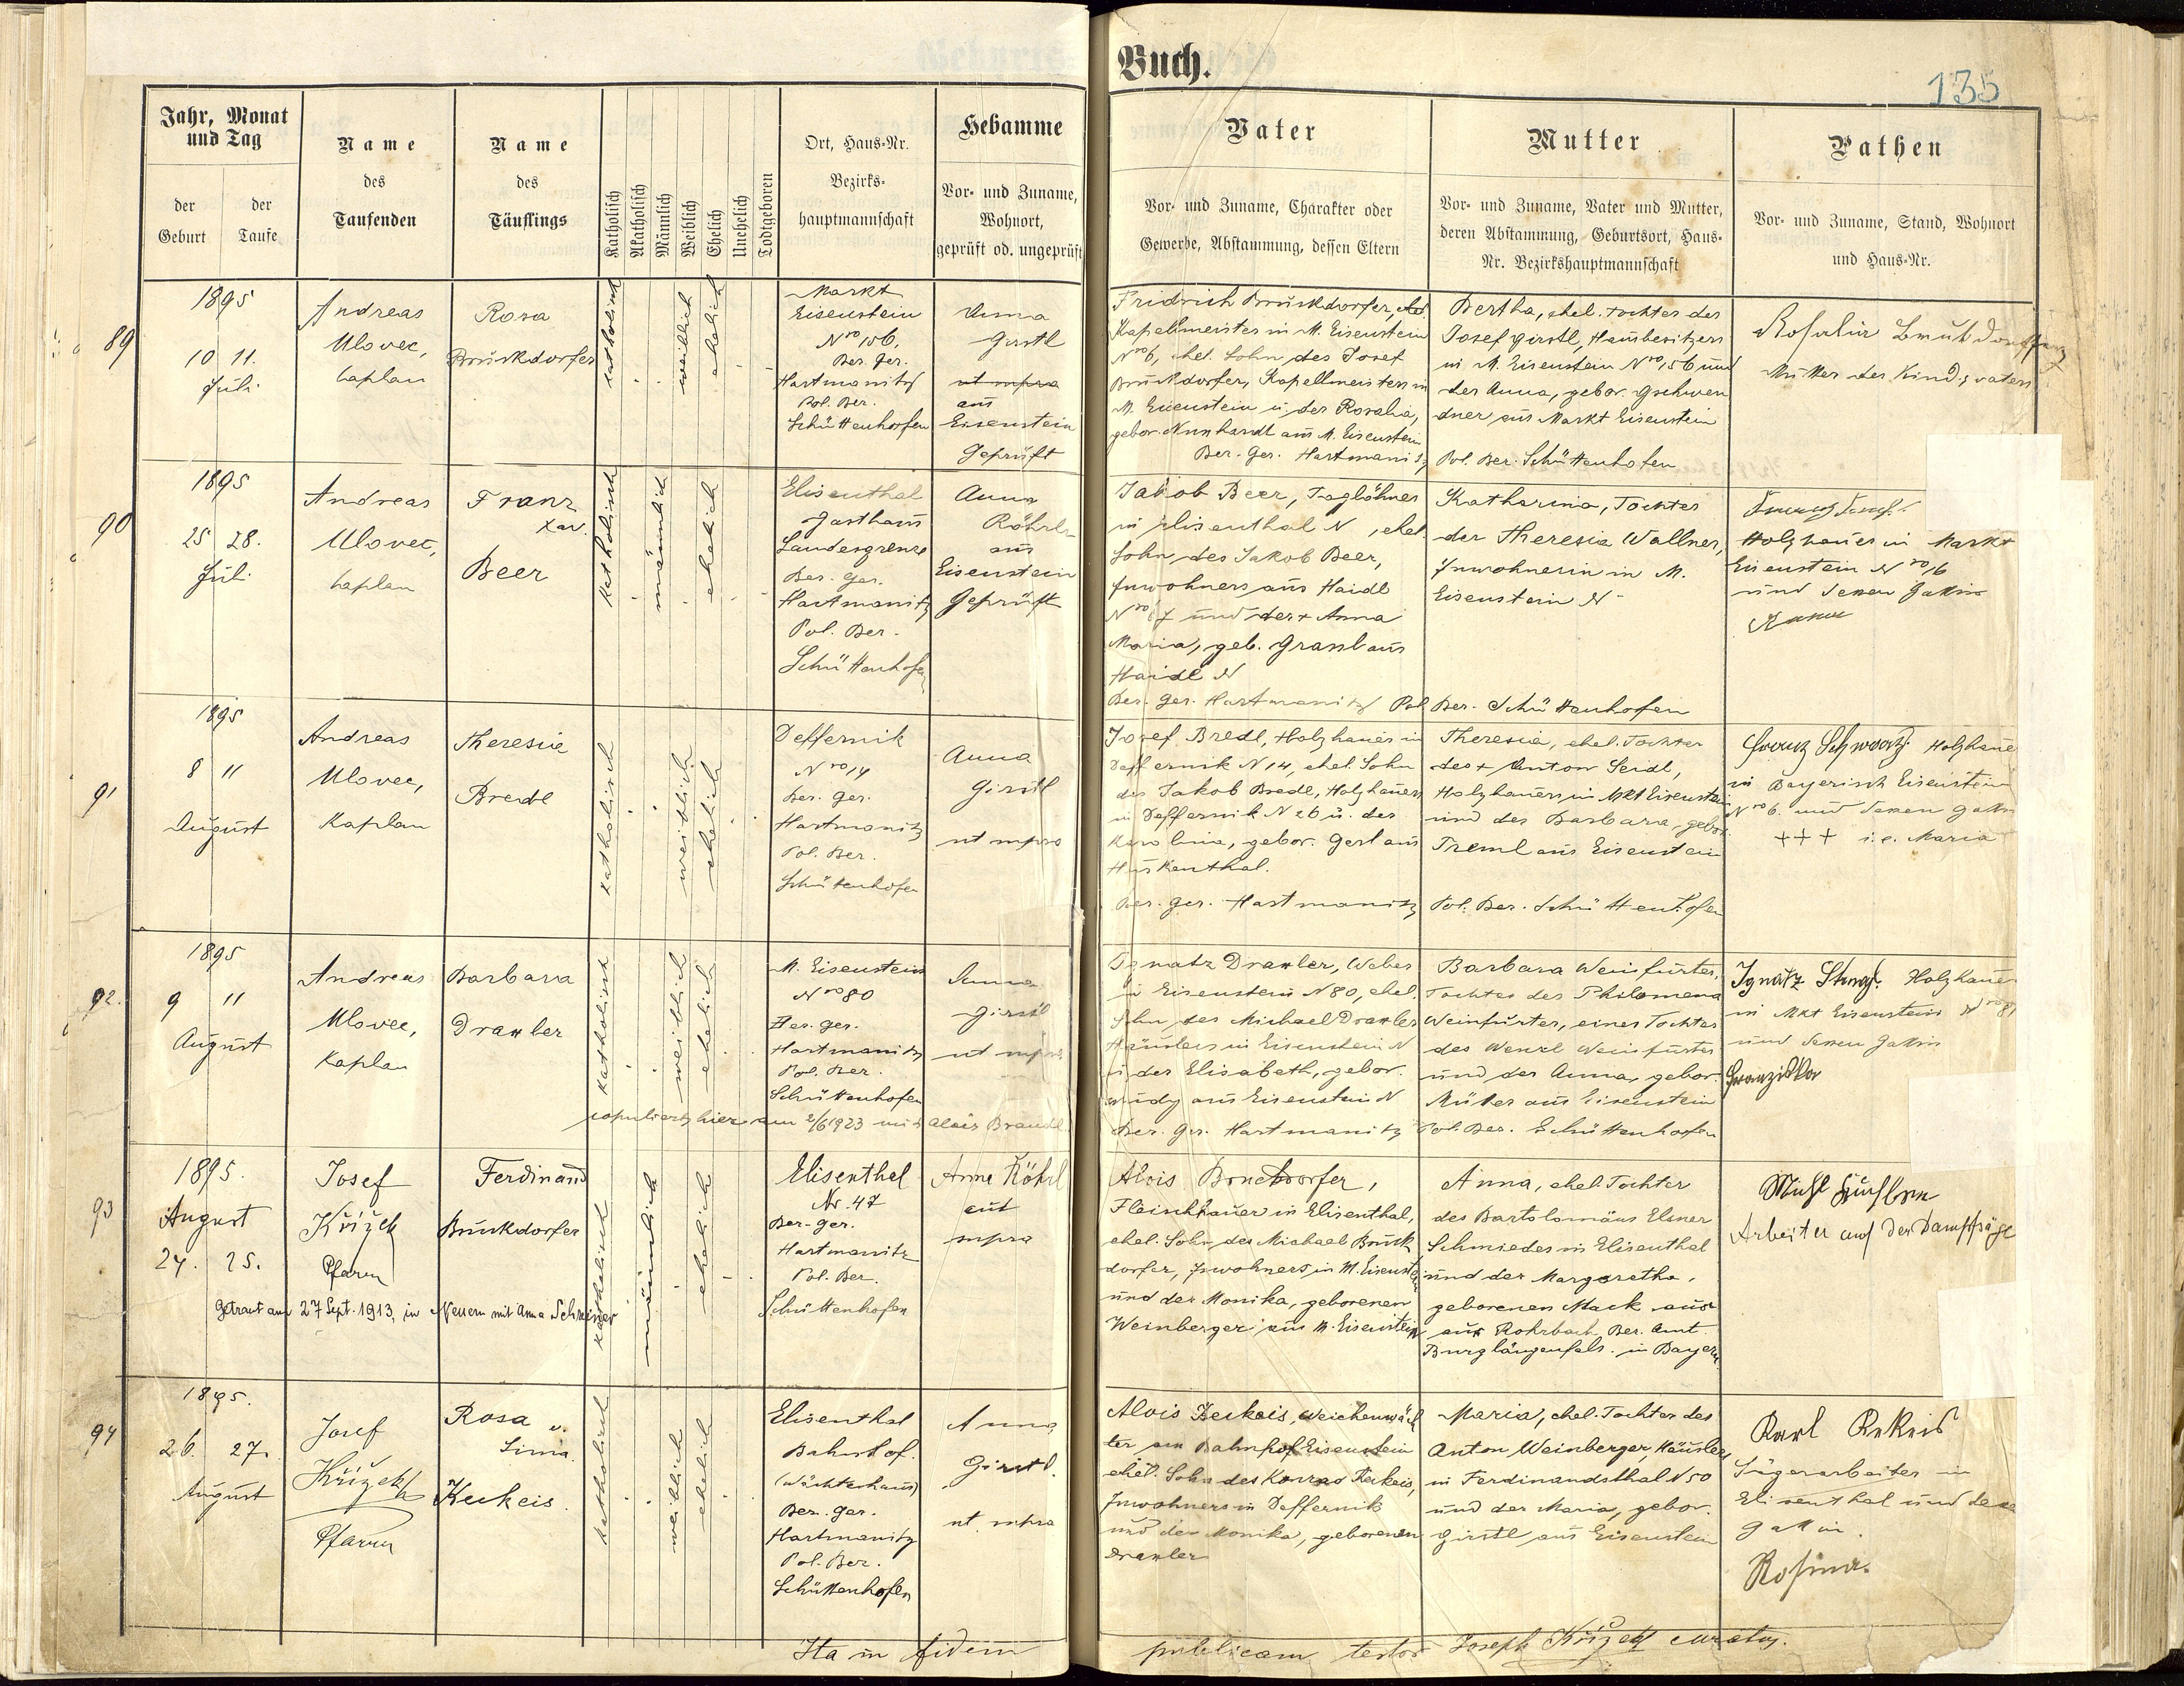 Buch.
135
Jahr, Monat
und Tag
der
Geburt
der
Taufe
Name
des
Taufenden
Name
des
Täuflings
Katholisch
Akatholisch
Männlich
Weiblich
Ehelich
Unehelich
Todtgeboren
Ort, Haus-Nr.
Bezirks-
hauptmannschaft
Hebamme
Vor- und Zuname,
Wohnort,
geprüft od. ungeprüft
Vater
Vor- und Zuname, Charakter oder
Gewerbe, Abstammung, dessen Eltern
Mutter
Vor- und Zuname, Vater und Mutter,
deren Abstammung, Geburtsort, Haus-
Nr. Bezirkshauptmannschaft
Pathen
Vor- und Zuname, Stand, Wohnort
und Haus-Nr.
89
1895
10 11.
Juli
Andreas
Ulovec,
Caplan
Rosa
Bruckdorfer
katholisch
weiblich
ehelich
Markt
Eisenstein
Nro 156,
Bez. Ger.
Hartmanitz
Pol. Bez.
Schüttenhofen
Anna
Girstl
ut supra
aus
Eisenstein
Geprüft
Fridrich Bruckdorfer,
Kapellmeister in M. Eisenstein
Nro 6, ehel. Sohn des Josef
Bruckdorfer, Kapellmeisters in
M. Eisenstein u. der Rosalia,
gebor. aus M. Eisenstein
Bez. Ger. Hartmanitz
Bertha, ehel. Tochter des
Josef Girstl, Hausbesitzers
in M. Eisenstein Nro 156 und
der Anna, gebor. Gschwen
dner aus Markt Eisenstein
Pol. Bez. Schüttenhofen
Rosalia
Mutter des Kindsvaters
90
1895
25 28.
Juli
Andreas
Ulovec,
Caplan
Franz
Xav.
Beer
katholisch
männlich
ehelich
Elisenthal
Gasthaus
Landesgrenze
Bez. Ger.
Hartmanitz
Pol. Bez.
Schüttenhofen
Anna
Röhrl
aus
Eisenstein
Geprüft
Jakob Beer, Taglöhner
in Elisenthal N , ehel.
Sohn des Jakob Beer,
Inwohners aus Haidl
Nro 67 und der + Anna
Maria, geb. Grassl aus
Haidl N
Bez. Ger. Hartmanitz
Katharina, Tochter
der Theresia Wallner,
Inwohnerin in M.
Eisenstein N
Pol. Bez. Schüttenhofen
Holzhauer in Markt
Eisenstein Nro 16
und dessen Gattin
91
1895
8 11
August
Andreas
Ulovec,
Kaplan
Theresia
Bredl
katholisch
weiblich
ehelich
Deffernik
Nro 14
Bez. Ger.
Hartmanitz
Pol. Bez.
Schüttenhofen
Anna
Girstl
ut supra
Josef Bredl, Holzhauer in
Deffernik N 14, ehel. Sohn
des Jakob Bredl, Holzhauers
in Deffernik N 26 u. der
Karolina, gebor. Gerl aus
Hurkenthal.
Bez. Ger. Hartmanitz
Theresia, ehel. Tochter
des + Anton Seidl,
Holzhauers in Mkt Eisenstein
und der Barbara, gebor.
Treml aus Eisenstein
Pol. Bez. Schüttenhofen
Franz Schwarz Holzhauer
in Bayerisch Eisenstein
Nro 6. und dessen Gattin
+++ i.e. Maria
92.
1895
9 11
August
Andreas
Ulovec,
Kaplan
Barbara
Draxler
katholisch
weiblich
ehelich
M. Eisenstein
Nro 80
Bez. Ger.
Hartmanitz
Pol. Bez.
Schüttenhofen
Anna
Girstl
ut supra
copuliert hier am 2/6 1923 mit Alois Brandl
Ignatz Draxler, Weber
in Eisenstein N 80, ehel.
Sohn des Michael Draxler
Häuslers in Eisenstein N
u. der Elisabeth, gebor.
aus Eisenstein N
Bez. Ger. Hartmanitz
Barbara Weinfurter,
Tochter der Philomena
Weinfurter, einer Tochter
des Wenzl Weinfurter
und der Anna, gebor.
Müller aus Eisenstein
Pol. Bez. Schüttenhofen
Ignatz Stengl. Holzhauer
in Mkt Eisenstein Nro 81
und dessen Gattin
Franziska
93
1895.
August
24. 25.
Josef
Křížek
Pfarrer
Ferdinand
Bruckdorfer
katholisch
männlich
ehelich
Getraut am 27 Sept. 1913, in Neuern mit Anna Schreiner
Elisenthal
Nr. 47
Bez-ger.
Hartmanitz
Pol. Bez.
Schüttenhofen
Anna Röhrl
aut
supra
Alois Bruckdorfer,
Fleischhauer in Elisenthal,
ehel. Sohn des Michael Bruck
dorfer, Inwohners in M. Eisenstein
und der Monika, geborenen
Weinberger aus M. Eisenstein
Anna, ehel. Tochter
des Bartolomäus Elsner
Schmiedes in Elisenthal
und der Margaretha,
geborenen Mack aus
aus Rohrbach Bez. Amt.
Burglängenfels. in Bayern.
Arbeiter auf der Dampfsäge
94
1895.
26. 27.
August
Josef
Křížek
Pfarrer
Rosa u.
Keckeis.
katholisch
weiblich
ehelich
Elisenthal
Bahnhof.
(Wächterhaus)
Bez. ger.
Hartmanitz
Pol. Bez.
Schüttenhofen
Anna
Girstl.
ut supra
Alois Keckeis, Weichenwäch
ter am Bahnhof Eisenstein
ehel. Sohn des Konrad Keckeis,
Inwohners in Deffernik
und der Monika, geborenen
Draxler
Maria, ehel. Tochter des
Anton Weinberger, Häusler
in Ferdinandsthal N 50
und der Maria, gebor.
Girstl aus Eisenstein
Karl Kekeis
Sägearbeiter in
Elisenthal und dessen
Gattin.
Rosina.
Ita in fidem
publicam testor Joseph Křížek curatus.